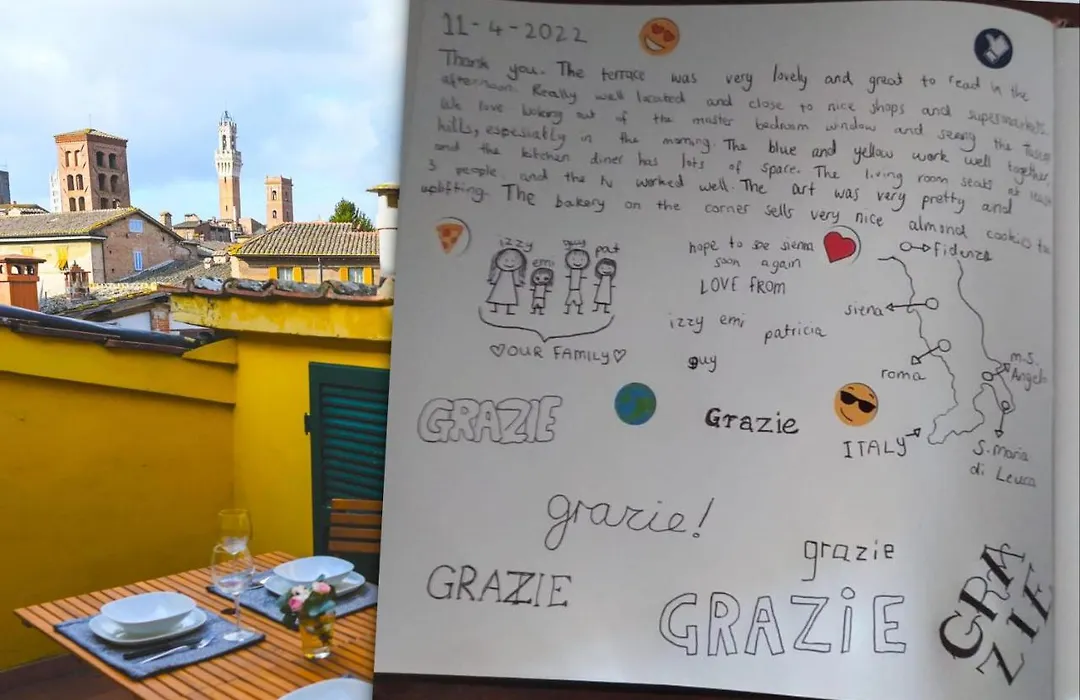 11-4-2022
Thank you. The terrace was very lovely and great to read in the
afternoon. Really well located and close to nice shops and supermarkets.
We love looking out of the master bedroom window and seeing the
hills, espesially in the morning. The blue and yellow work well together,
and the kitchen diner has lots of space. The living room seats at
3 people and the tv worked well. The art was very pretty and
uplifting. The bakery on the corner sells very nice almond cookie
izzy
emi
guy
pat
♡OUR FAMILY♡
hope to se siena
soon again
LOVE FROM
izzy emi patricia
guy
Fidenza
siena
roma
m.S.
Angelo
ITALY
S. Maria
di Leuca
GRAZIE
Grazie
grazie!
grazie
GRAZIE
GRAZiE
GRAZIE